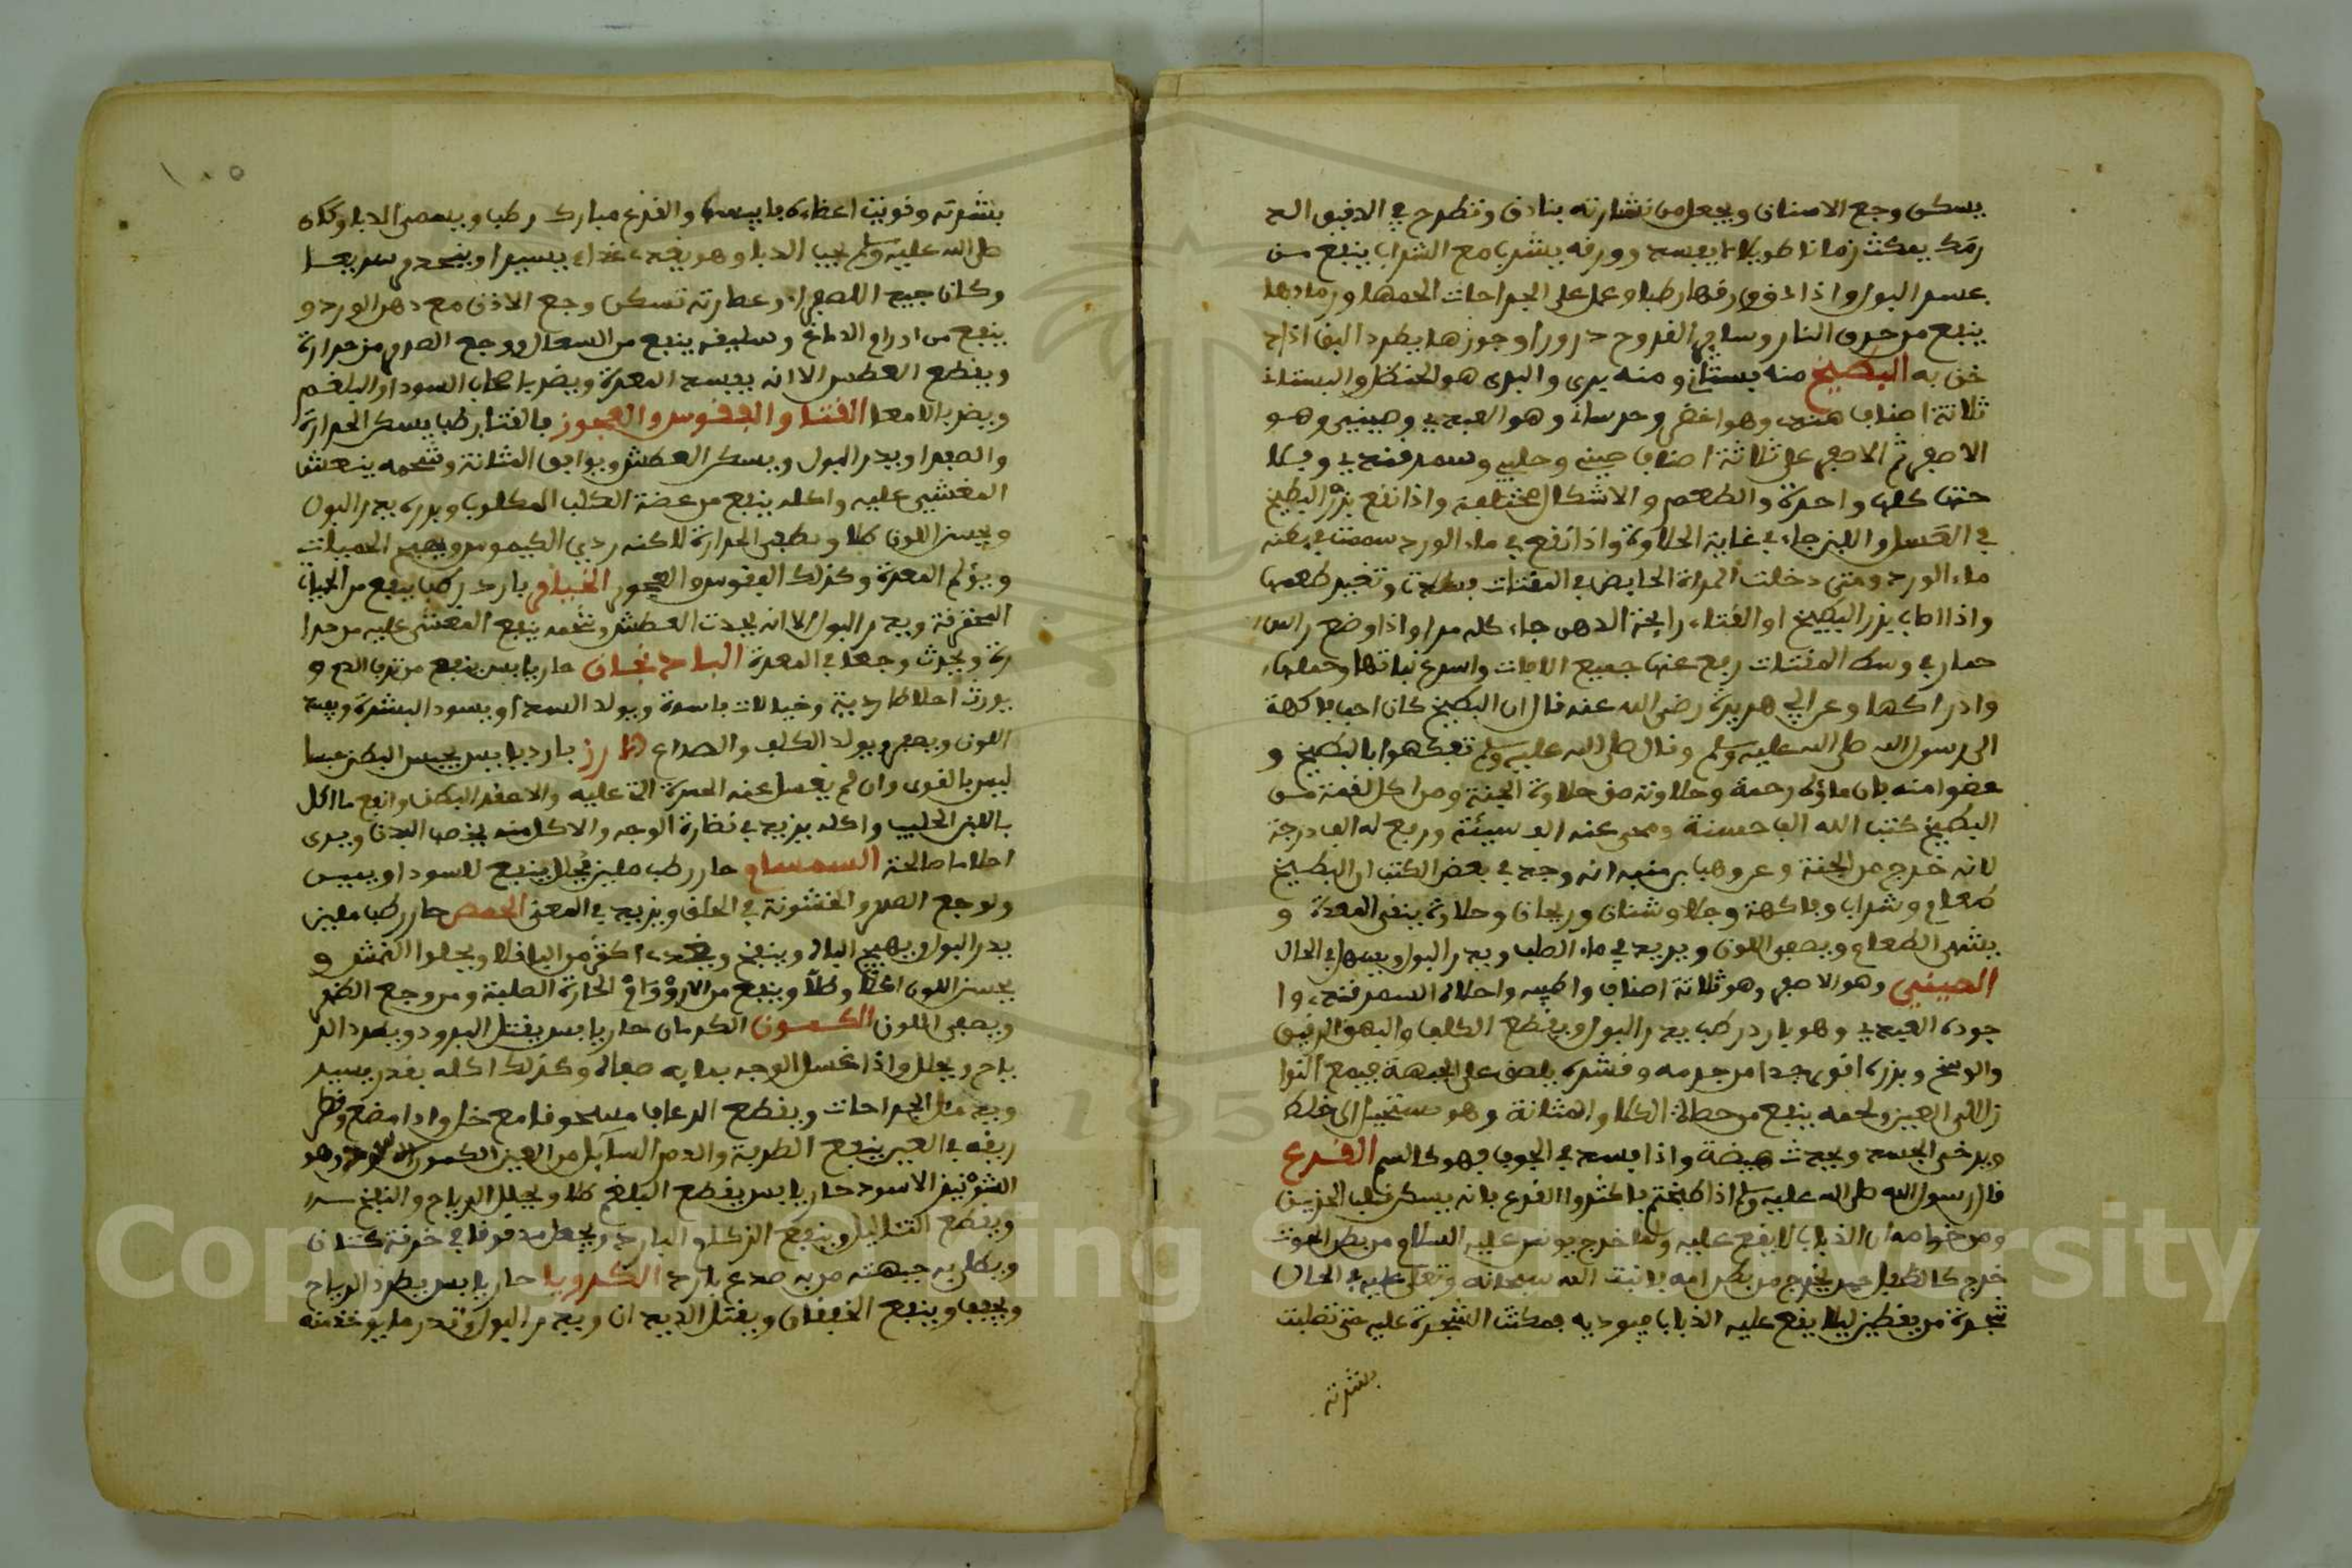 يسكن وجع الاسنان ويجعل من نشارته بنادق وتطرح في الدقيق الذ
رمك يمكث زمانا طويلا لا يفسد وورقه يشرب مع الشراب ينفع من
عسر البول واذا دق ورقها رطبا وعمل على الجراحات الحمها ورمادها
ينفع من حرق النار وساير القروح درورا وجوزها يطرد البق اذا د
خن به البطيخ منه بستاني ومنه بري والبري هو الحنظل والبستاني
ثلاثة اصناف هندي وهو اخضر وخرساني وهو العبدلي وصينيي وهو
الاصفر ثم الاصفر على ثلاثة اصناف صيني وحلبي وسمرقندي
كلها واحدة والطعم والاشكال مختلفة واذا نقع بزر البطيخ
في العسل واللبن جاء في غاية الحلاوة واذا نقع في ماء الورد
ماء الورد ومتى دخلت المراة الحايض في المقتات فسدت وتغير طعمها
واذا اصاب بزر البطيخ او القثاء رايحة الدهن جاء كله مرا واذا وضع راس
حمار في وسط المقتات دفع عنها جميع الافات واسرع نباتها وحملها
وادراكها وعن ابي هريرة رضي الله عنه قال ان البطيخ كان احب فاكهة
الى رسول الله صلى الله عليه وسلم وقال صلى الله عليه وسلم تفكهوا بالبطيخ و
عضوا منه فان ماؤه رحمة وحلاوته من حلاوة الجنة ومن اكل لقمة من
البطيخ كتب الله الف حسنة ومحى عنه الف سيئة ورفع له الف درجة
لانه خرج من الجنة وعن وهب بن منبه انه وجد في بعض الكتب ان البطيخ
طعام وشراب وفاكهة وجلا وشنان وريحان وحلاوة ينقي المعدة و
يشهي الطعام ويصفي اللون ويزيد في ماء الصلب ويدر البول ويسهل في الحال
الصينيي وهو الاصفر وهو ثلاثة اصناف واطيبه واحلاه السمرقندي وا
جوده العبدلي وهو بارد رطب يدر البول ويقطع الكلف والبهق الرقيق
والوسخ وبزره اقوى جدا من جرمه وقشره يلصق على الجبهة فيمنع النوا
زل الى العين ولحمه ينفع من حصاة الكلا والمثانة وهو يستحيل الى خلط
ويرخي الجسد ويحدث هيضة واذا فسد في الجوف فهو كالسم القرع
قال رسول الله صلى الله عليه وسلم اذا طبختم فاكثروا القرع فانه يسكن قلب الحزين
ومن خواصه ان الذباب لا يقع عليه ولما خرج يونس عليه السلام من بطن الحوت
خرج كالطفل حين يخرج من بطن امه فانبت الله سبحانه وتعالى عليه في الحال
شجرة من يقطين ليلا يقع عليه الذباب فيوديه فمكثت الشجرة عليه حتى تصلبت
بشرته
١٠٥
بشرته وقويت اعضاءه فايبسها والقرع مبارك رطب ويسمى الدبا وكان
صلى الله عليه وسلم يحب الدبا وهو يغدي غذاء يسيرا وينحدر سريعا
وكان جيد للصفرا وعصارته تسكن وجع الاذن مع دهن الورد و
ينفع من اورام الدماغ وسليقه ينفع من السعال ووجع الصدر من حرارة
ويقطع العطش الا انه يفسد المعدة ويضر باصحاب السودا والبلغم
ويضر بالامعا القثا والفقوس والعجور فالقثا رطب يسكن الحرارة
والصفرا ويدر البول ويسكن العطش ويوافق المثانة وشحمه ينعش
المغشيي عليه واكله ينفع من عضة الكلب المكلوب وبزره يدر البول
ويحسن اللون طلا ويطفي الحرارة لاكنه ردي الكيموس ويهيج الحميات
ويؤلم المعدة وكذلك الفقوس والعجور الخيار بارد رطب ينفع من الحميات
المحترقة ويدر البول الا انه يحدث العطش وشمه ينفع المغشى عليه من حرا
رة ويحدث وجعا في المعدة الباذنجان حار يابس ينفع من نزف الدم و
يورث اخلاطا ردية وخيالات فاسدة ويولد السدد او يسود البشرة ويفسد
اللون ويصفر ويولد الكلف والصداع الارز بارد يابس يحبس البطن حبسا
ليس بالقوى وان لم يغسل عنه الحمرة التي عليه والا عقد البطن وانفع ما اكل
باللبن الحليب واكله يزيد في نظارة الوجه والاكل منه يخصب البدن ويرى
احلاما صالحة السمسم حار رطب ملين محلل ينفع للسودا ويبس
ولوجع الصدر والخشونة في الحلق ويزيد في المني الحمص حار رطب ملين
يدر البول ويهيج الباه وينفخ ويغدي اكثر من الباقلا ويجلوا النمش و
يحسن اللون اكلا وطلا وينفع من الاورام الحارة الصلبة ومن وجع الظهر
ويصفي اللون الكمون الكرماني حار يابس يقتل الدود ويطرد الر
ياح ويحلل واذا غسل الوجه بمايه صفاه وكذلك اكله بقدر يسير
ويدمل الجراحات ويقطع الرعاف مسحوقا مع خل واذا مضغ وقطر
ريقه في العين ينفع الطرفة والدم السايل من العين الكمون الاسود وهو
الشونيز الاسود حار يابس يقطع البلغم طلا ويحلل الرياح والنفخ
ويقطع الثئاليل وينفع الزكام البارد ويجعل مدقوقا في خرقة كتان
ويطلى به جبهته من به صداع بارد الكرويا حار يابس يطرد الرياح
ويجفف وينفع الخفقان ويقتل الديدان ويدر البول وقدر ما يوخذ منه